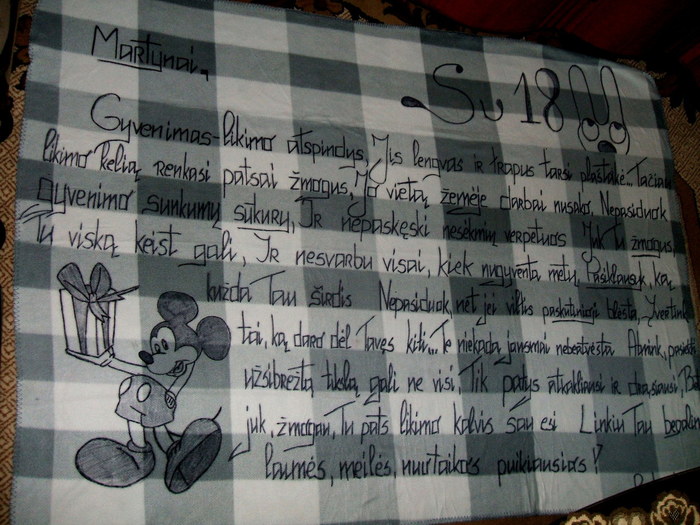 Martynai,
Su 18
Gyvenimas-likimo atspindys, Jis lengvas ir trapus tarsi plaštakė... Tačiau
likimo kelią renkasi patsai žmogus, Jo vietą žemėje darbai nusako, Nepasiduok
gyvenimo sunkumų sukury, Ir nepaskęski nesėkmų verpetuos Juk Tu žmogus
Tu viską keist gali, Ir nesvarbu visai, kiek nugyventa metų, Pasiklausyk, ką
kužda Tau širdis Nepasiduok, net jei viltis paskutinioji blėsta, Įvertink
tai, ką daro dėl Tavęs kiti... Te niekada jausmai nebeatvėsta Atmink, pasiekti
užsibrėžtą tikslą gali ne visi, Tik patys atkakliausi ir drąsiausi, Bet
juk, žmogau, Tu pats likimo kalvis sau esi Linkiu Tau
laimės, meilės, nuotaikos puikiausios!